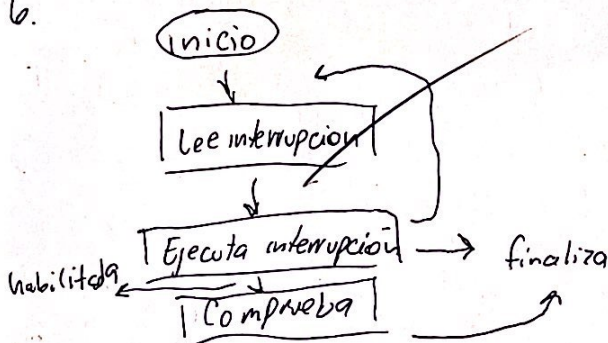 6.
inicio
Lee interrupcion
Ejecuta interrupción
finaliza
habilitada
Comprueba